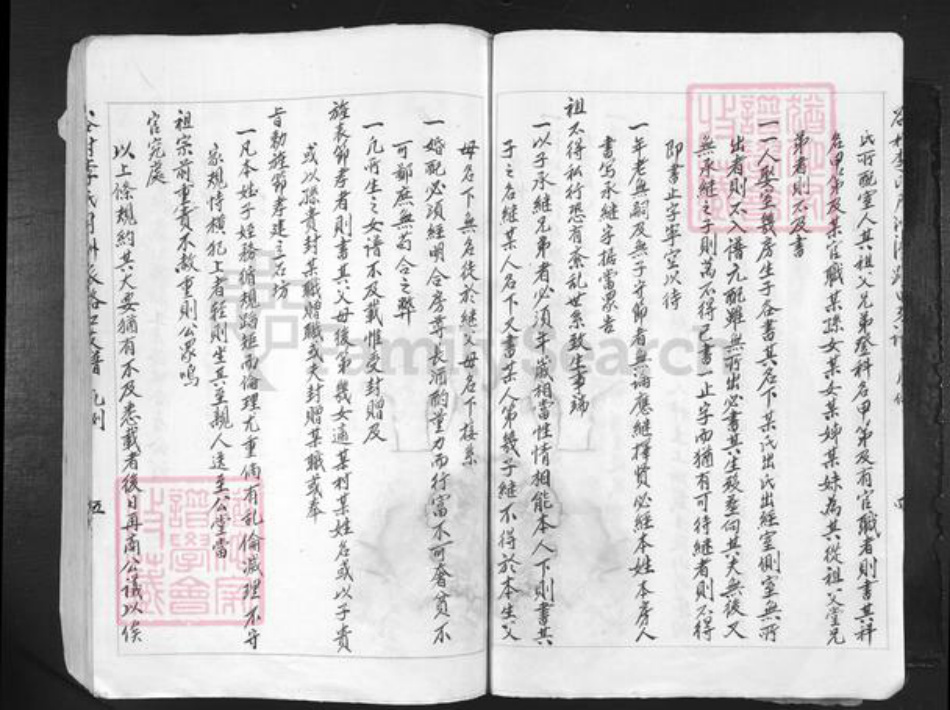 氏所配室人其祖父兄弟登科名甲第及有官職者則書其祥
名甲第及某官職某孫女某女某姊某妹為其從祖父堂兄
弟者則不及書
一一人娶室幾房生子各書其名下某氏出氏出繼室側室無所
出者則不入譜元配雖無所出必書其生歿塟向其夫無後又
無承繼之子則萬不得已書一止字而猶有可待繼者則不得
即書止字寧空以待
一年老無嗣及無子守節者無論應繼擇賢必經本姓本房人
書写承繼字據當眾告
祖不得私行恐有紊乱世系致生事端
一以子承繼兄弟者必須年歲相當性情相能本人下則書其
子之名繼某人名下又書某人第幾子繼不得於本生父
母名下無名徒於繼父母名下接系
一婚配必須經明合房尊長酒酌量力而行富不可奢貧不
可鄙庶無苟合之弊
一凡所生之女譜不及載惟受封贈及
旌表節孝者則書其父母後第幾女適某村某姓名或以子貴
或以孫貴封某職贈職或夫封贈某職或奉
旨勅旌節孝建立石坊
一凡本姓子姪務循規蹈矩而倫理尤重倘有乱倫滅理不守
家規恃橫犯上者輕則坐其至親人送至公堂當
祖宗前重責不赦重則公眾鳴
官究處
以上條規約其大要猶有不及悉載者後日再商公議以俟
凡例
伍
FamilySearch